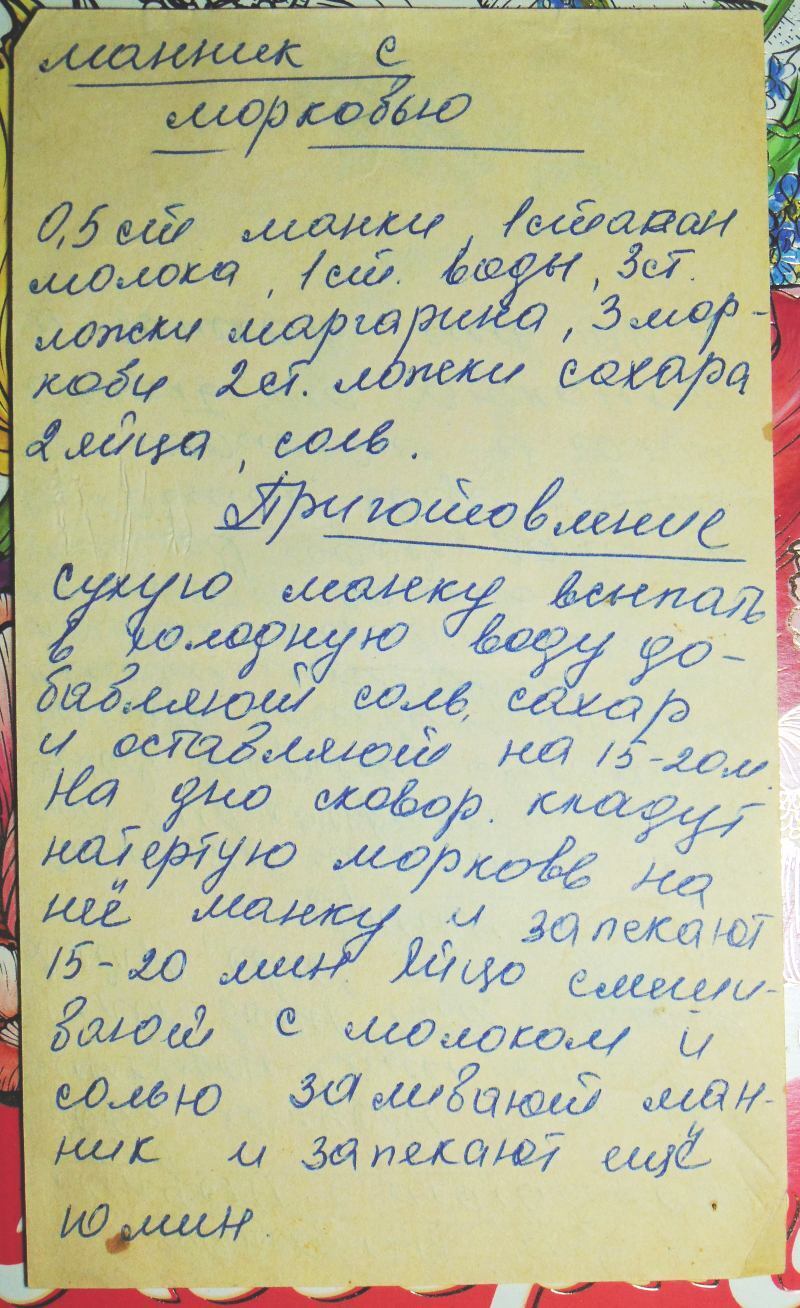 манник с
морковью
0,5 ст манки, 1 стакан
молока, 1 ст. воды, 3 ст.
ложки маргарина, 3 мор-
кови 2 ст. ложки сахара
2 яйца, соль.
Приготовление
сухую манку всыпать
в холодную воду до-
бавляют соль, сахар
и оставляют на 15-20м.
На дно сковор. кладут
натертую морковь на
неё манку и запекают
15-20 мин. Яйцо смеши-
вают с молоком и
солью заливают ман-
ник и запекают ещё
10 мин.